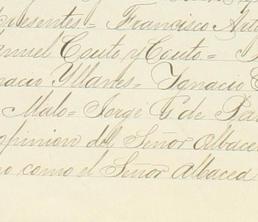 presentes - Francisco Art
anuel Couto y Couto =
nacio Yllanes = Ignacio
Malo = Jorge G de Par
opinion del Señor Albacea
no como el Señor Albacea